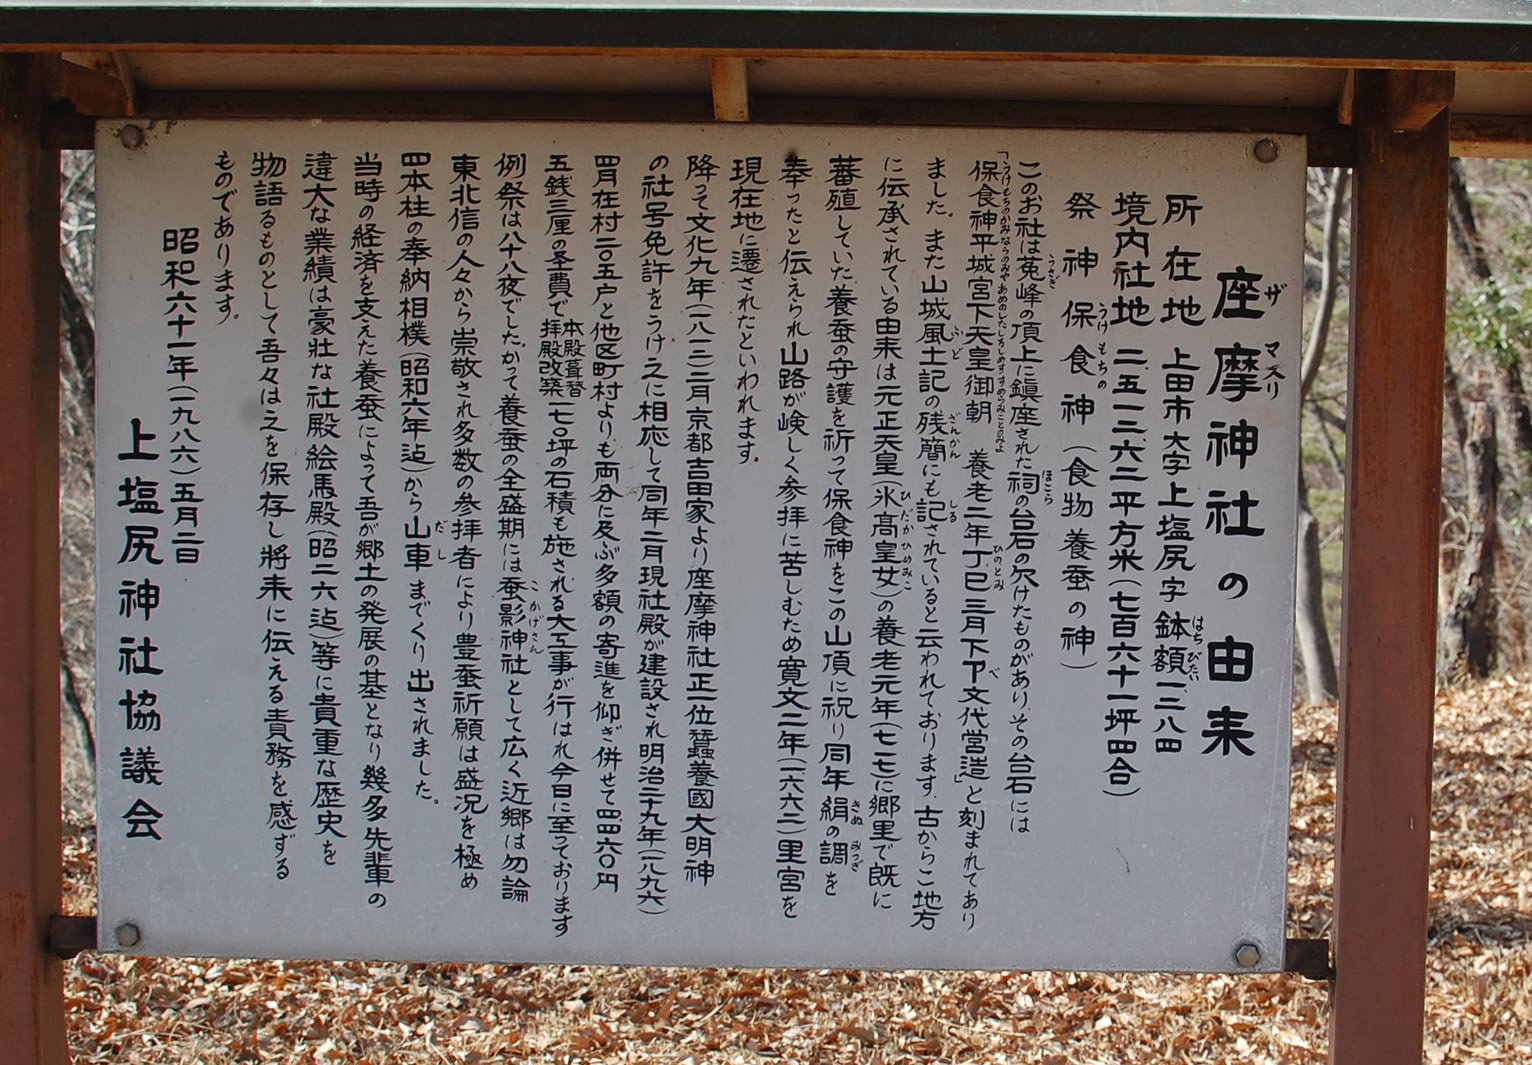 座摩神社の由来
所在地 上田市大字上塩尻字鉢額一三八四
境内社地 二五一二、六二平方米(七百六十一坪四合)
祭神 保食神(食物養蚕の神)
このお社は菟峰の頂上に鎮座された祠の台石の欠けたものがあり、その台石には
「保食神平城宮下天皇御朝 養老二年丁巳三月下卩文代営造」と刻まれてあり
ました。また山城風土記の残簡にも記されていると云われております。古からこ地方
に伝承されている由来は元正天皇(氷高皇女)の養老元年(七一七)に郷里で既に
蕃殖していた養蚕の守護を祈って保食神をこの山頂に祝り同年絹の調を
奉ったと伝えられ山路が峻しく参拝に苦しむため寛文二年(一六六二)里宮を
現在地に遷されたといわれます。
降って文化九年(一八一二)二月京都吉田家より座摩神社正一位蠶養國大明神
の社号免許をうけ之に相応して同年二月現社殿が建設され明治二十九年(一八九六)
四月在村二〇五戸と他区町村よりも両分に及ぶ多額の寄進を仰ぎ併せて四四六〇円
五銭三厘の圣費で本殿葺替拝殿改築一七〇坪の石積も施される大工事が行はれ今日に至っております
例祭は八十八夜でした。かって養蚕の全盛期には蚕影神社として広く近郷は勿論
東北信の人々から崇敬され多数の参拝者により豊蚕祈願は盛况を極め
四本柱の奉納相樸(昭和六年迠)から山車までくり出されました。
当時の経済を支えた養蚕によって吾が郷土の発展の基となり幾多先輩の
違大な業績は豪壮な社殿絵馬殿(昭二六迠)等に貴重な歴史を
物語るものとして吾々は之を保存し將来に伝える責務を感ずる
ものであります。
昭和六十一年(一九八六)五月二日
上塩尻神社協議会